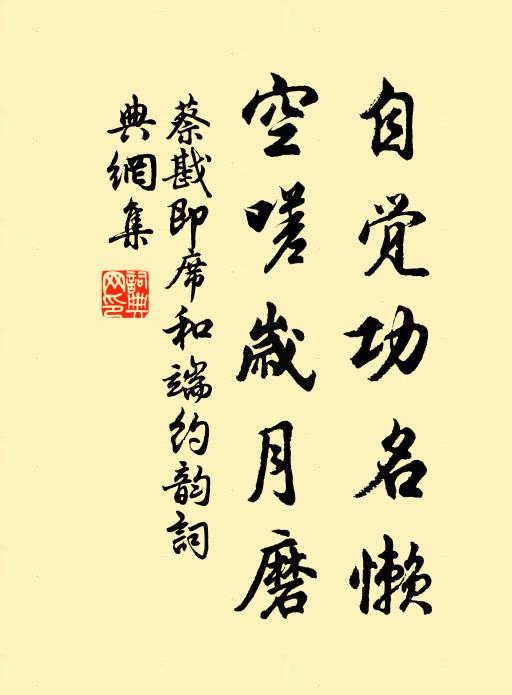 自觉功名懒
空嗟歲月磨
蔡戡即席和端约韵詞
典網集
詞典
网印